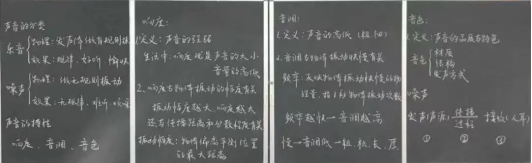 声音的分类
乐音
物理：发声体做有规则振
效果：规律、好听、愉快
噪声
物理：做无规则振动
效果：无规律、难听、
声音的特性
响度、音调、音色
响度：
1.定义：声音的强弱
生活中：响度就是声音的大小
音量的高低
2.响度与物体振动的幅度有关
振动幅度越大，响度越大
还与传播距离和分散程度有关
振动幅度：物体偏离平衡位置
的最大距离
音调：
1.定义：声音的高低（粗细）
2.音调与物体振动快慢有关
频率：反映物体振动快慢的物
理量，指1秒物体振动次数
频率越快→音调越高
慢→音调低→粗、
音色：
1.定义：声音的品质与特色
音色
材质
结构
发声方式
噪声
发声（声源）
传播
过程
接收（人耳）
① ② ③